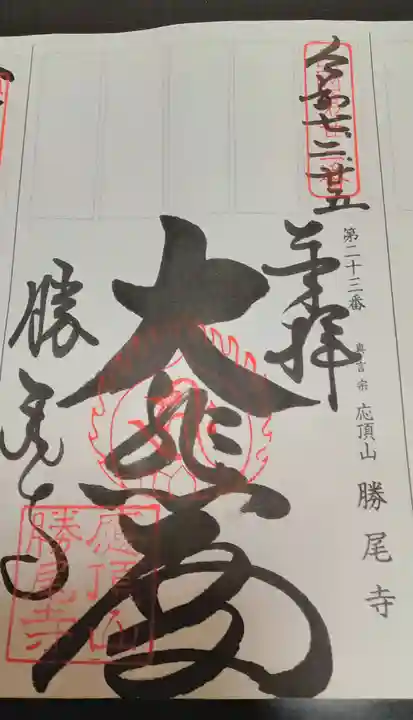 令和七.二.廿五
奉拝
第二十三番 真言宗 応頂山 勝尾寺
大悲殿
勝尾寺
應頂山
勝尾寺